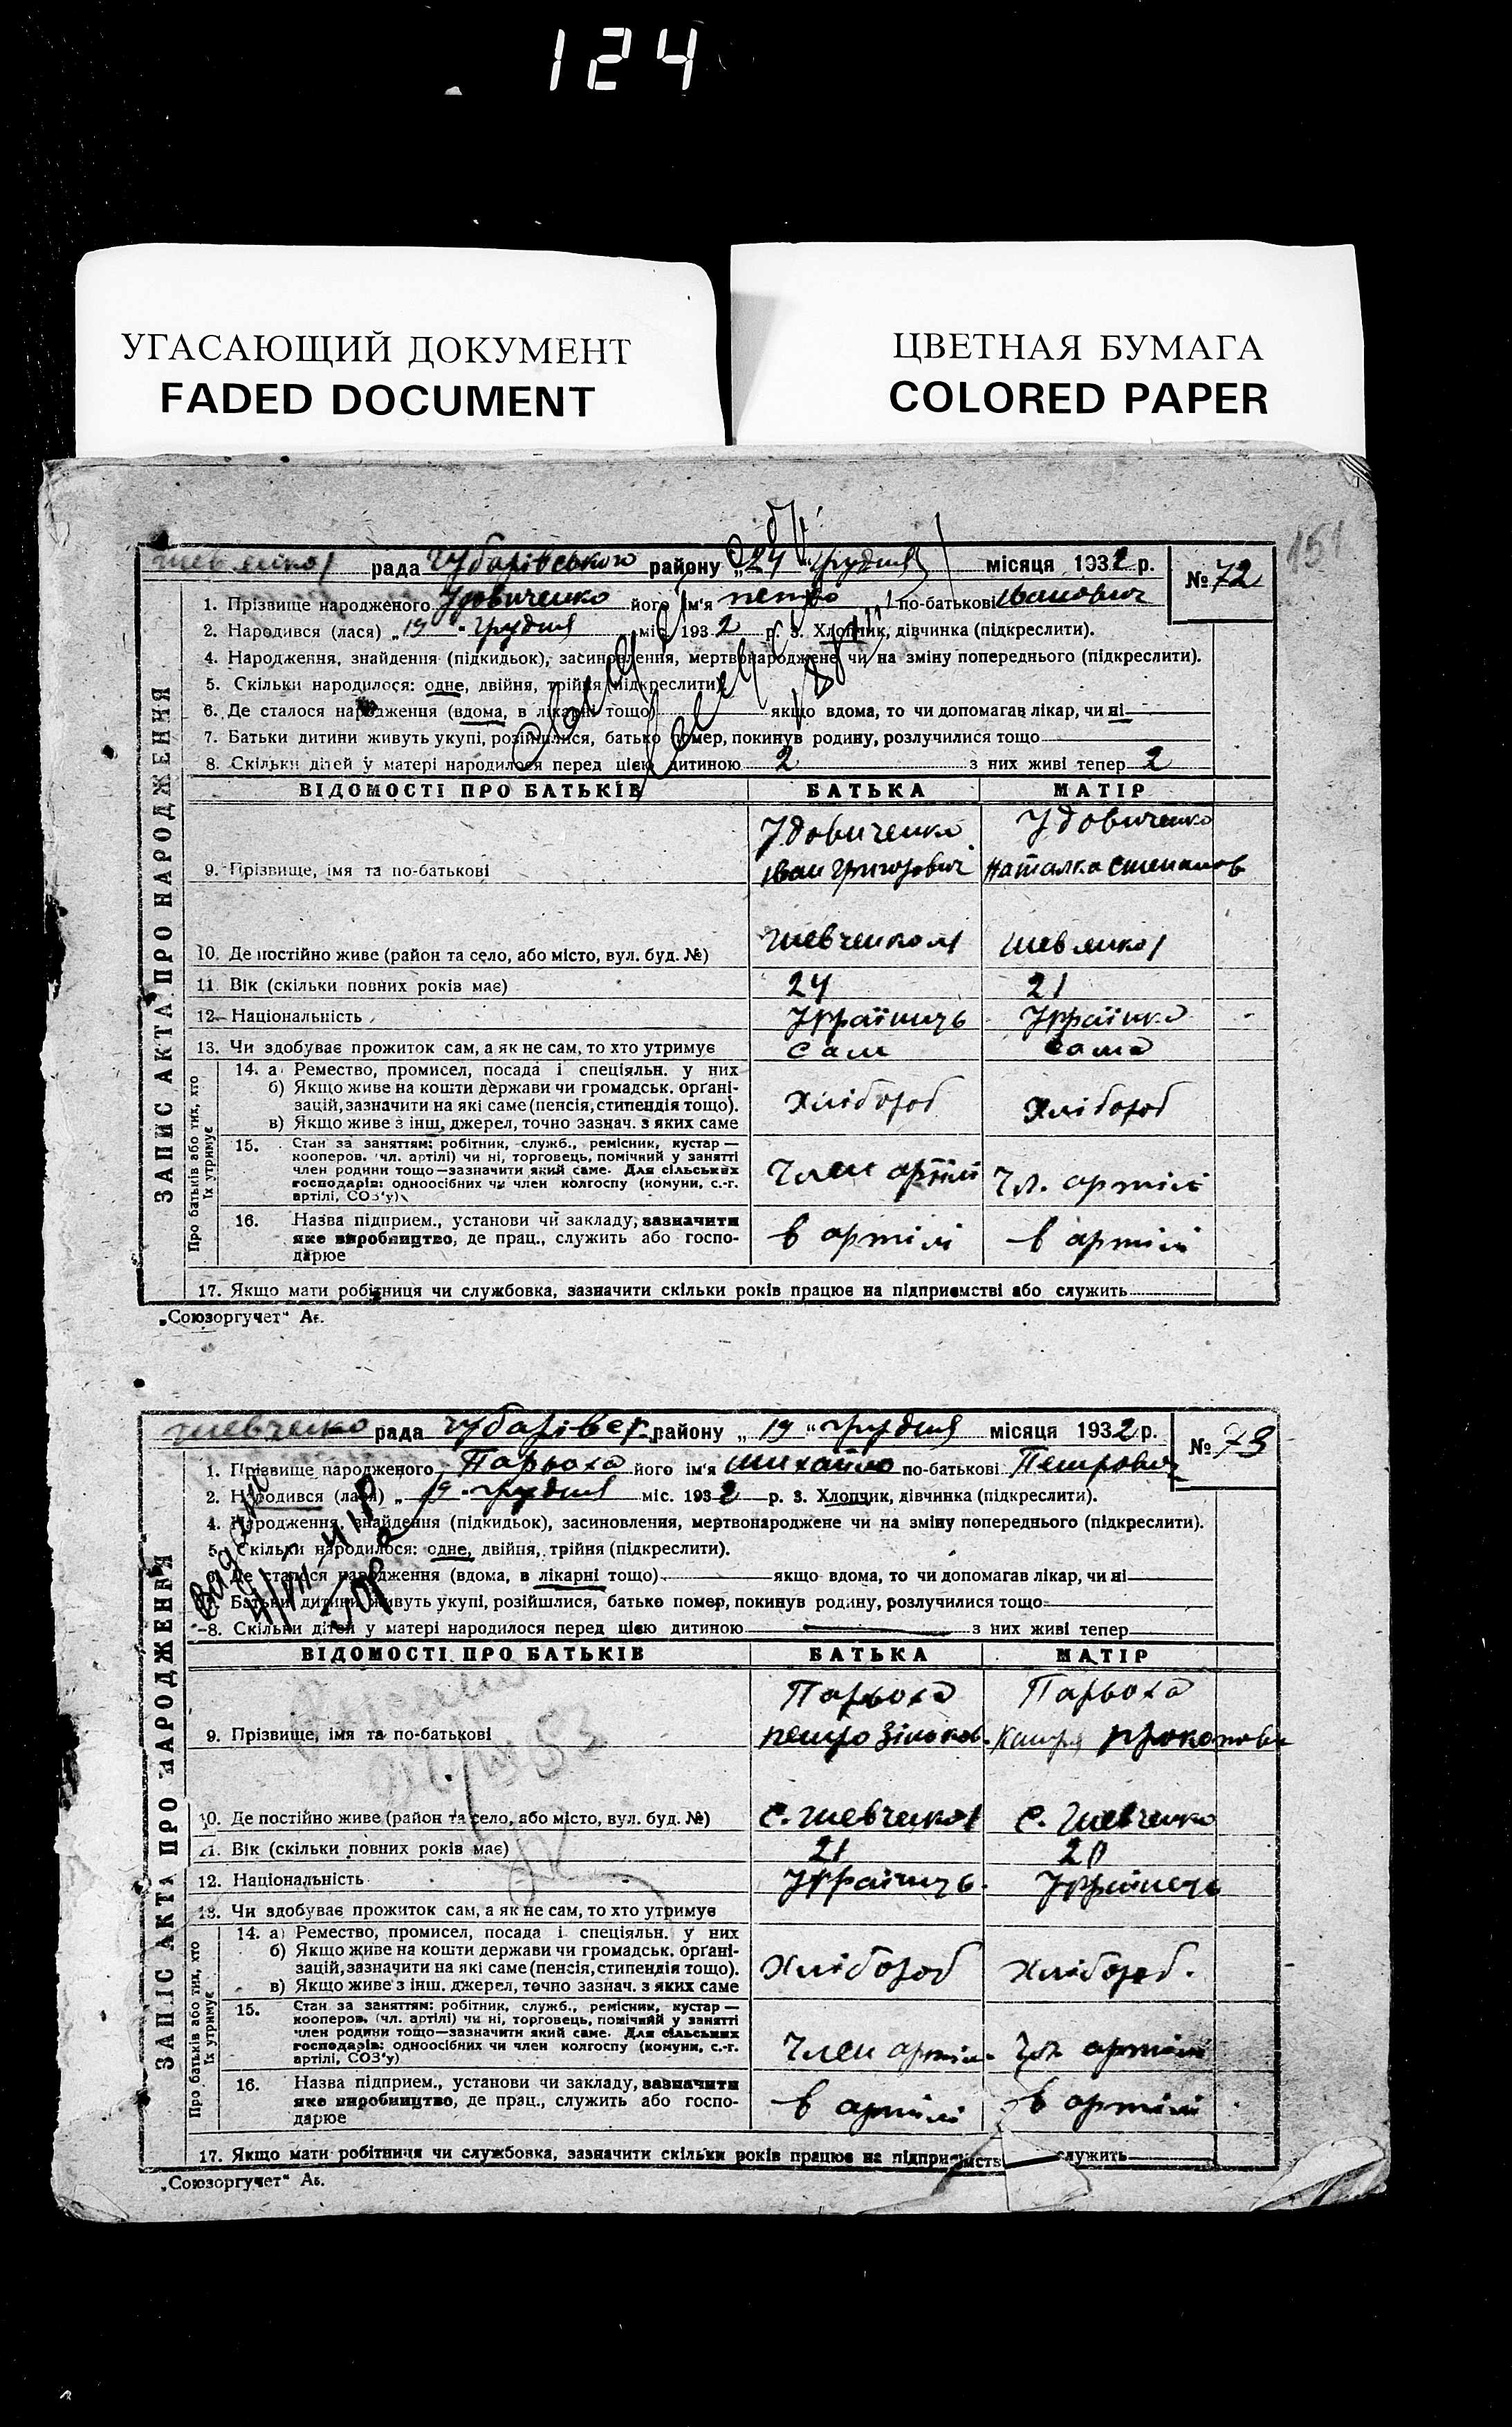 124
УГАСАЮЩИЙ ДОКУМЕНТ
FADED DOCUMENT
ЦВЕТНАЯ БУМАГА
COLORED PAPER
151
рада Чубарівського району „24 “ грудня місяця 1932 р. № 72
1. Прізвище народженого Удовиченко його ім'я петро по-батькові Іванович
2. Народився (лася) „ 19 “ грудня міс. 1932 р. 3. Хлопчик, дівчинка (підкреслити).
4. Народження, знайдення (підкидьок), засиновлення, мертвонароджене чи на зміну попереднього (підкреслити).
5. Скільки народилося: одне, двійня, трійня (підкреслити).
6. Де сталося народження (вдома, в лікарні тощо) якщо вдома, то чи допомагав лікар, чи ні
7. Батьки дитини живуть укупі, розійшлися, батько помер, покинув родину, розлучилися тощо
8. Скільки дітей у матері народилося перед цією дитиною 2 з них живі тепер 2
ВІДОМОСТІ ПРО БАТЬКІВ БАТЬКА МАТІР
Удовиченко Удовиченко
9. Прізвище, імя та по-батькові Іван Григорович Наталка Степанов
10. Де постійно живе (район та село, або місто, вул. буд. №)
11 Вік (скільки повних років має) 24 21
12 Національність Українець Українка
13. Чи здобуває прожиток сам, а як не сам, то хто утримує сам сама
14. а) Ремество, промисел, посада і спеціяльн. у них
б) Якщо живе на кошти держави чи громадськ. орґані-
зацій, зазначити на які саме (пенсія, стипендія тощо). Хлібороб Хлібороб
в) Якщо живе з інш. джерел, точно зазнач. з яких саме
15. Стан за заняттям: робітник, служб., ремісник, кустар —
кооперов. (чл. артілі) чи ні, торговець, помічний у занятті
член родини тощо—зазначити який саме. Для сільських Член артілі Чл. артілі
господарів: одноосібних чи член колгоспу (комуни, с.-г.
артілі, СОЗ'у)
16. Назва підприєм., установи чи закладу, зазначити
яке виробництво, де прац., служить або госпо- в артілі в артілі
дарює
17. Якщо мати робітниця чи службовка, зазначити скільки років працює на підприємстві або служить
ЗАПИС АКТА ПРО НАРОДЖЕННЯ
Про батьків або тих, хто
їх утримує
„Союзоргучет“
Шевченко рада району „ 19 “ грудня місяця 1932 р. № 73
1. Прізвище народженого Парьоха його ім'я Михайло по-батькові Петрович
2. Народився (лася) „ 19 “ грудня міс. 1932 р. 3. Хлопчик, дівчинка (підкреслити).
4. Народження, знайдення (підкидьок), засиновлення, мертвонароджене чи на зміну попереднього (підкреслити).
5. Скільки народилося: одне, двійня, трійня (підкреслити).
6. Де сталося народження (вдома, в лікарні тощо) якщо вдома, то чи допомагав лікар, чи ні
7. Батьки дитини живуть укупі, розійшлися, батько помер, покинув родину, розлучилися тощо
8. Скільки дітей у матері народилося перед цією дитиною з них живі тепер
ВІДОМОСТІ ПРО БАТЬКІВ БАТЬКА МАТІР
Парьоха Парьоха
9. Прізвище, імя та по-батькові петро
10. Де постійно живе (район та село, або місто, вул. буд. №) с. Шевченко
11. Вік (скільки повних років має) 21 20
12. Національність Українець Українець
13. Чи здобуває прожиток сам, а як не сам, то хто утримує
14. а) Ремество, промисел, посада і спеціяльн. у них
б) Якщо живе на кошти держави чи громадськ. орґані-
зацій, зазначити на які саме (пенсія, стипендія тощо). Хлібороб Хлібороб.
в) Якщо живе з інш. джерел, точно зазнач. з яких саме
15. Стан за заняттям: робітник, служб., ремісник, кустар —
кооперов. (чл. артілі) чи ні, торговець, помічний у занятті
член родини тощо—зазначити який саме. Для сільських
господарів: одноосібних чи член колгоспу (комуни, с.-г. Член артіл. Чл. артілі
артілі, СОЗ'у)
16. Назва підприєм., установи чи закладу, зазначити
яке виробництво, де прац., служить або госпо- в артілі в артілі
дарює
17. Якщо мати робітниця чи службовка, зазначити скільки років працює на підприємств служить
ЗАПИС АКТА ПРО НАРОДЖЕННЯ
Про батьків або тих, хто
їх утримує
„Союзоргучет“